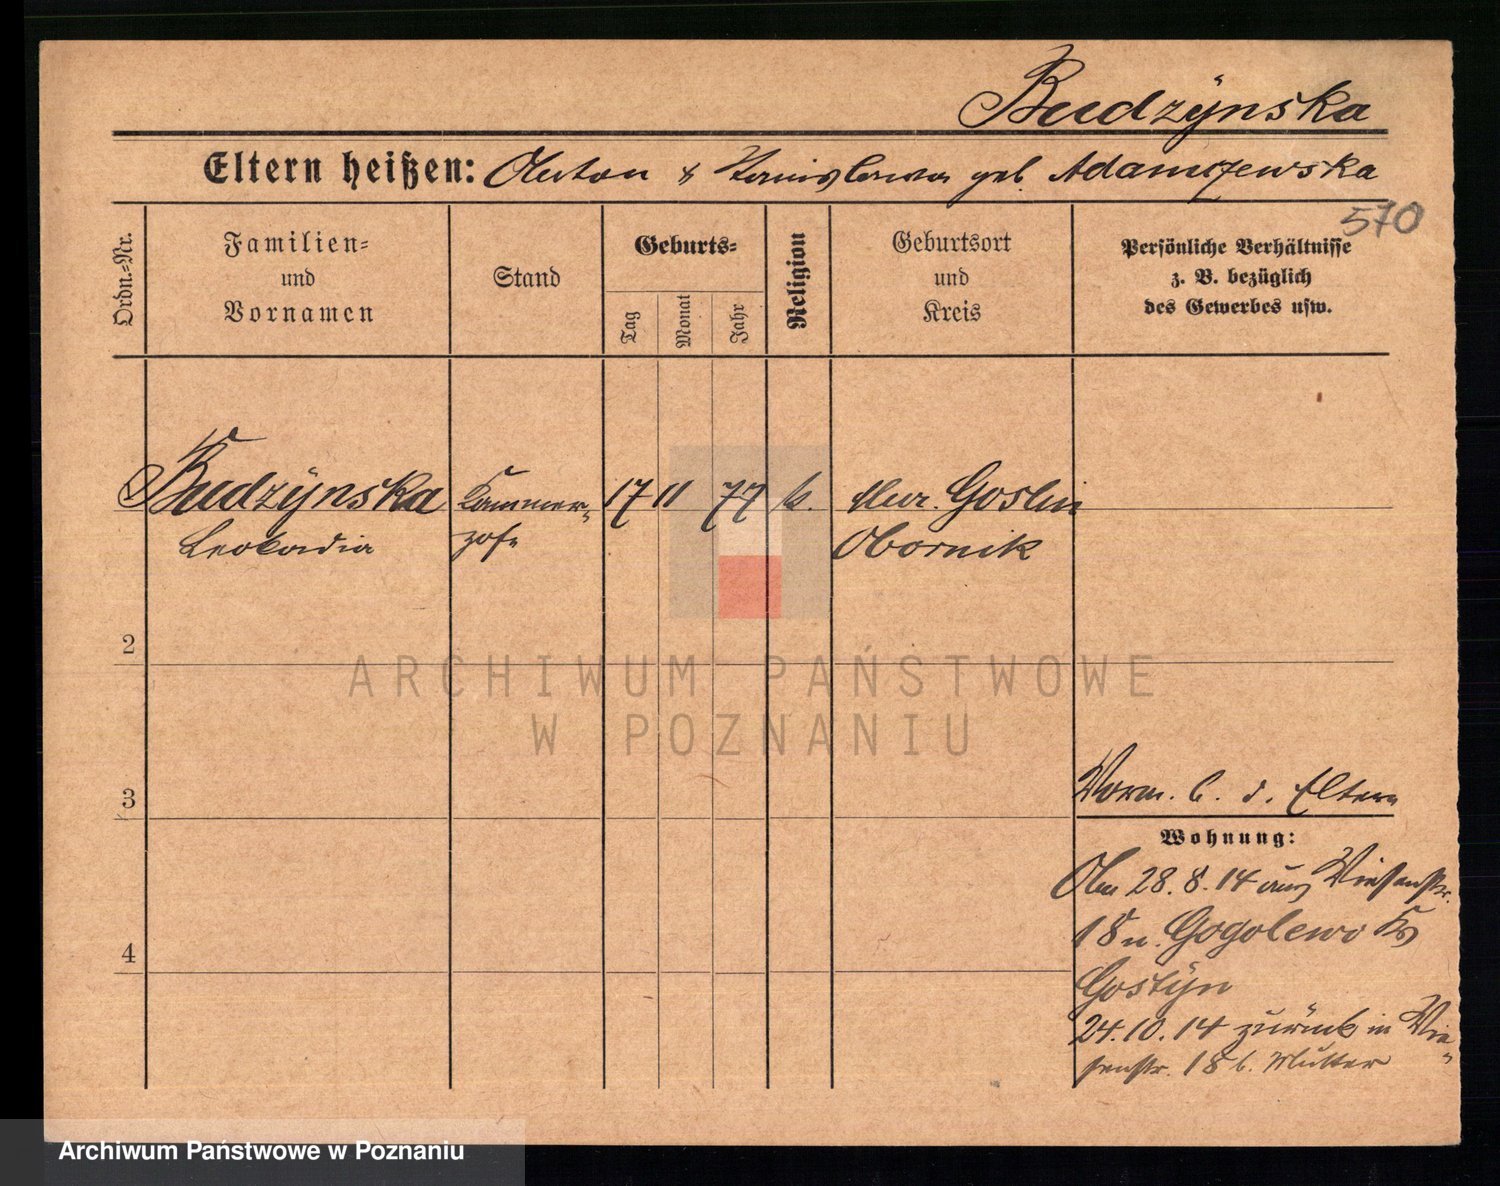 Budzÿnska
Eltern heißen: Anton & Stanislawa geb. Adamszewska
570
Ordn.=Nr.
Familien=
und
Vornamen
Stand
Geburts=
Tag
Monat
Jahr
Religion
Geburtsort
und
Kreis
Persönliche Verhältnisse
z. B. bezüglich
des Gewerbes usw.
Budzÿnska Kammer= 17 11 77 k. Mur. Goslin
Leokadia zofe Obornik
2
ARCHIWUM PAŃSTWOWE
W POZNANIU
3
Vorm. b. d. Eltern
Wohnung:
Am 28.8.14 aus Wiesenstr.
18 n. Gogolewo Krs
Gostÿn
4
24.10.14 zurück in Wie=
senstr. 18 b. Mutter
Archiwum Państwowe w Poznaniu